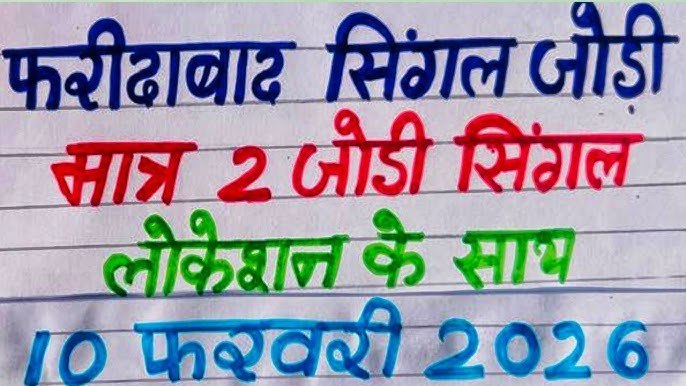 फरीदाबाद सिंगल जोड़ी
मात्र 2 जोडी सिंगल
लोकेशन के साथ
10 फरवरी 2026